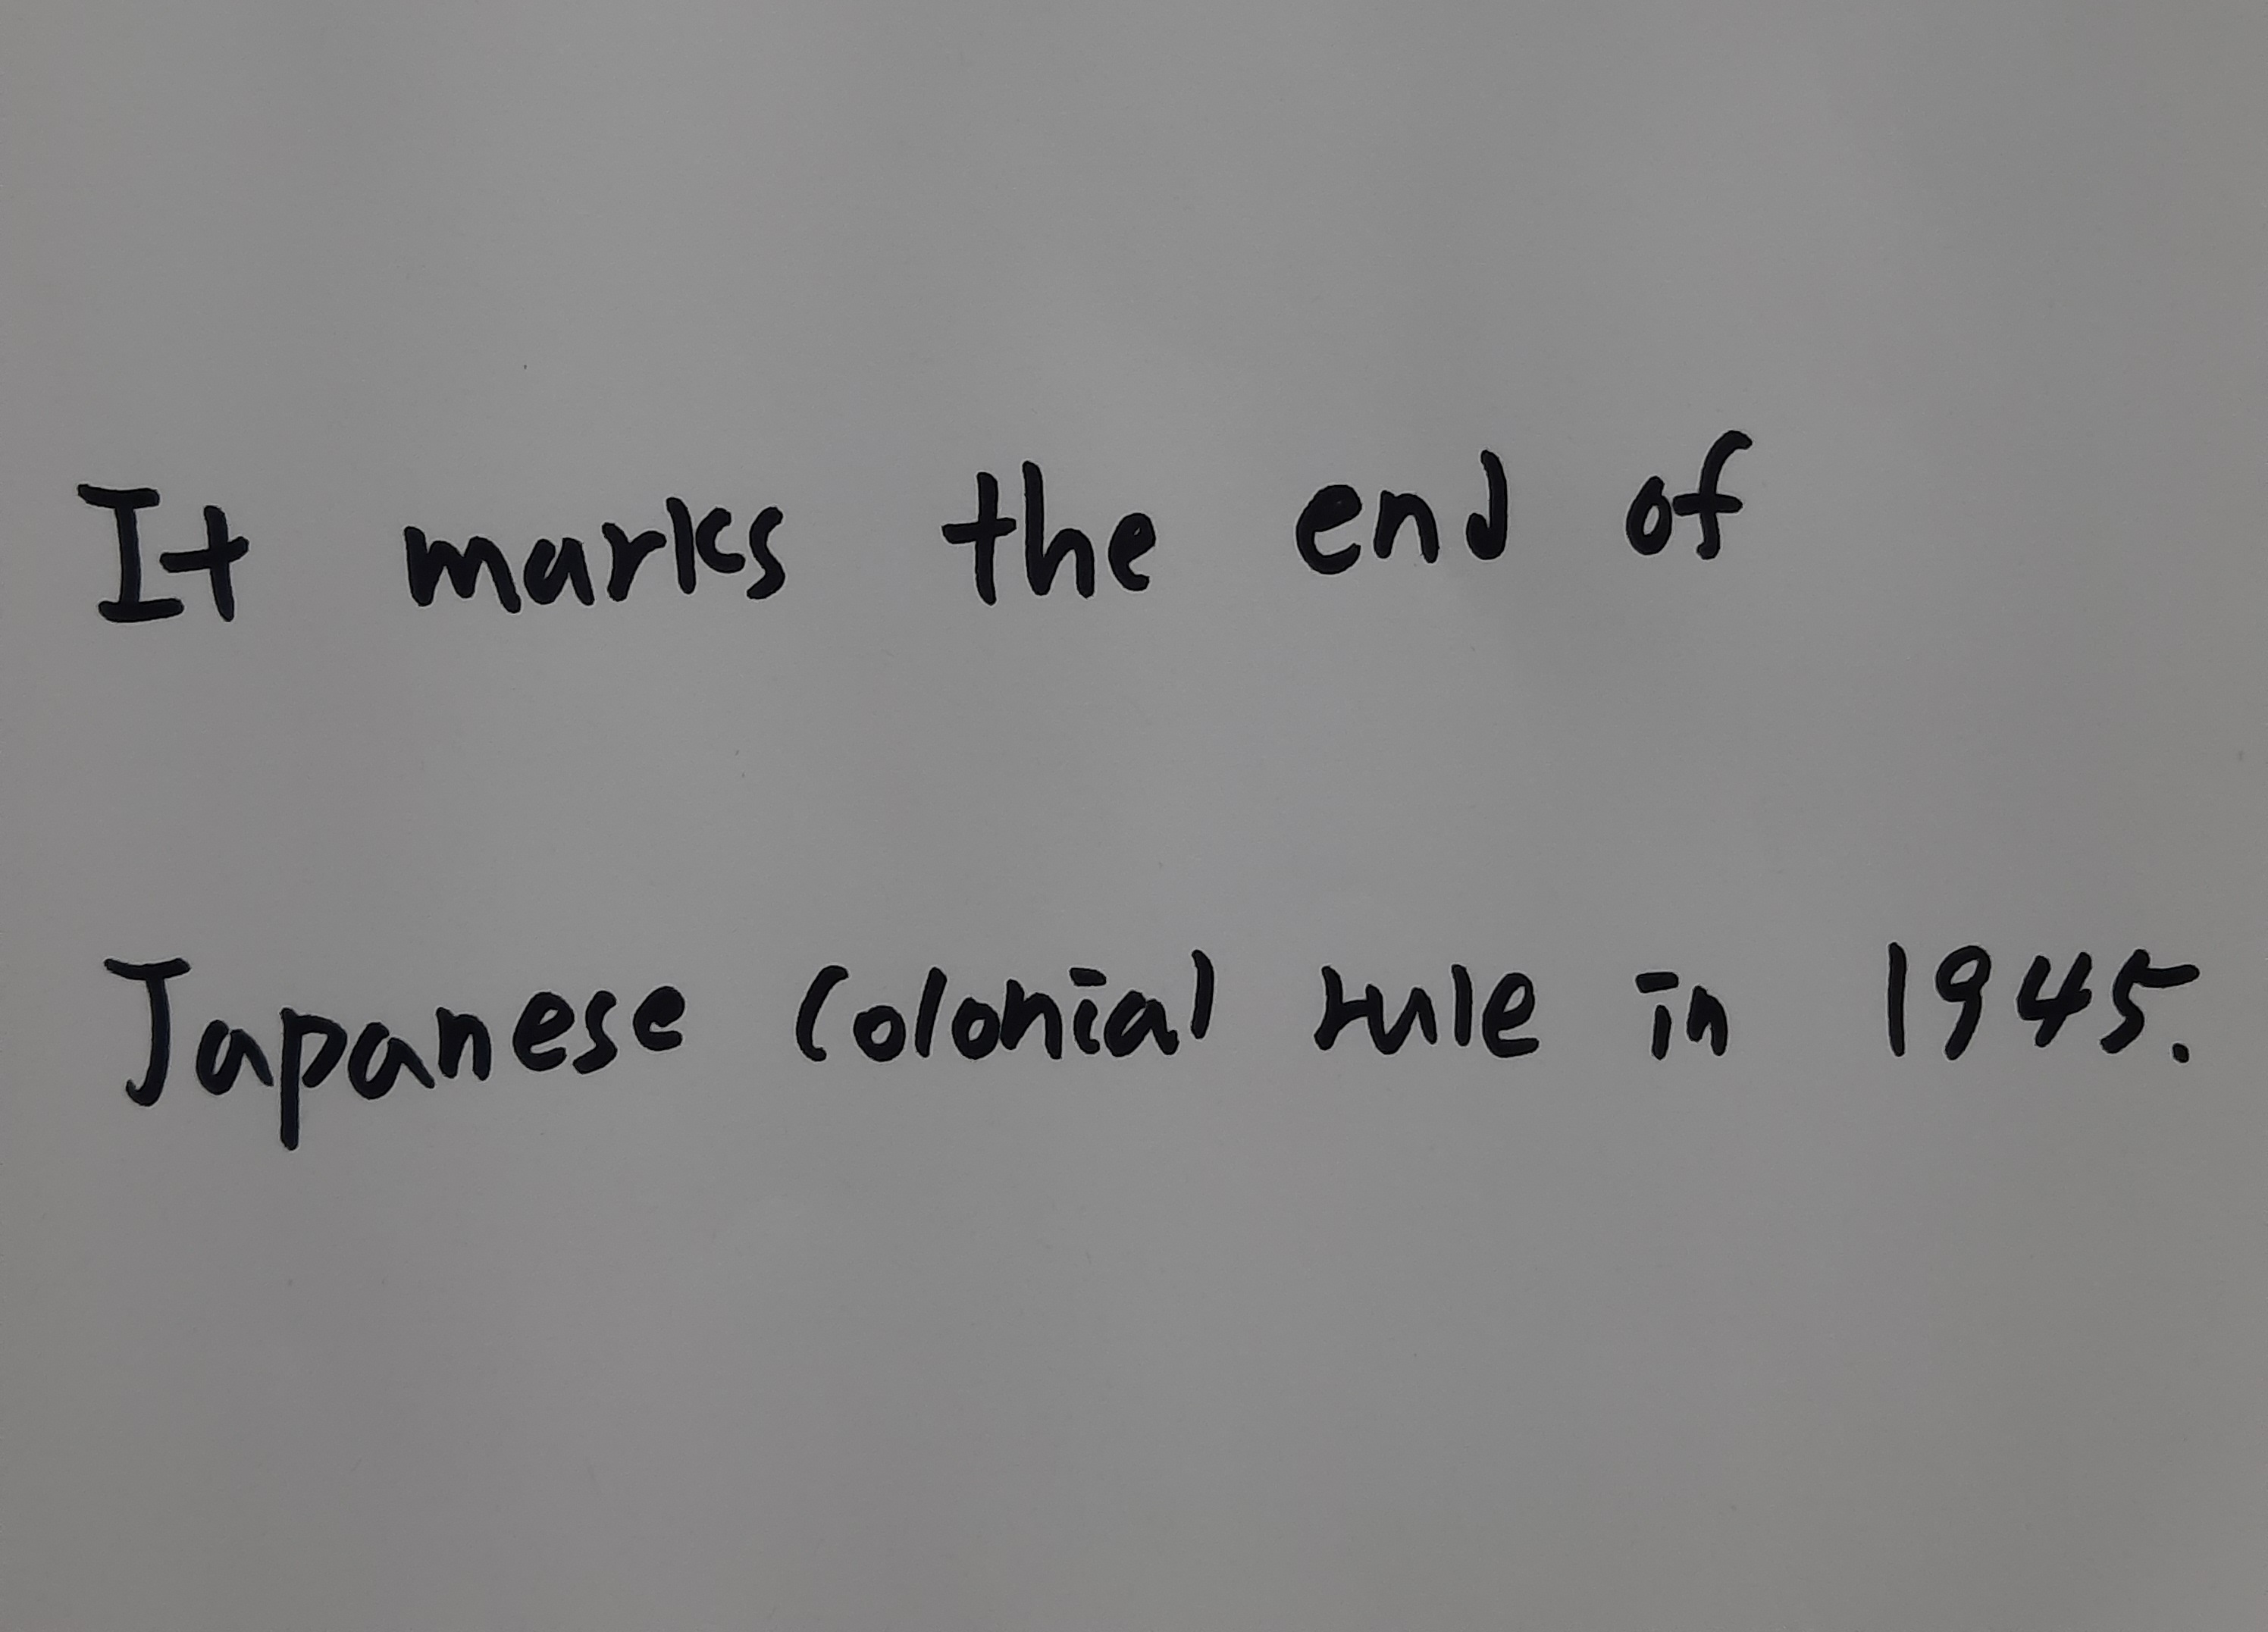 It marks the end of
Japanese colonial rule in 1945.